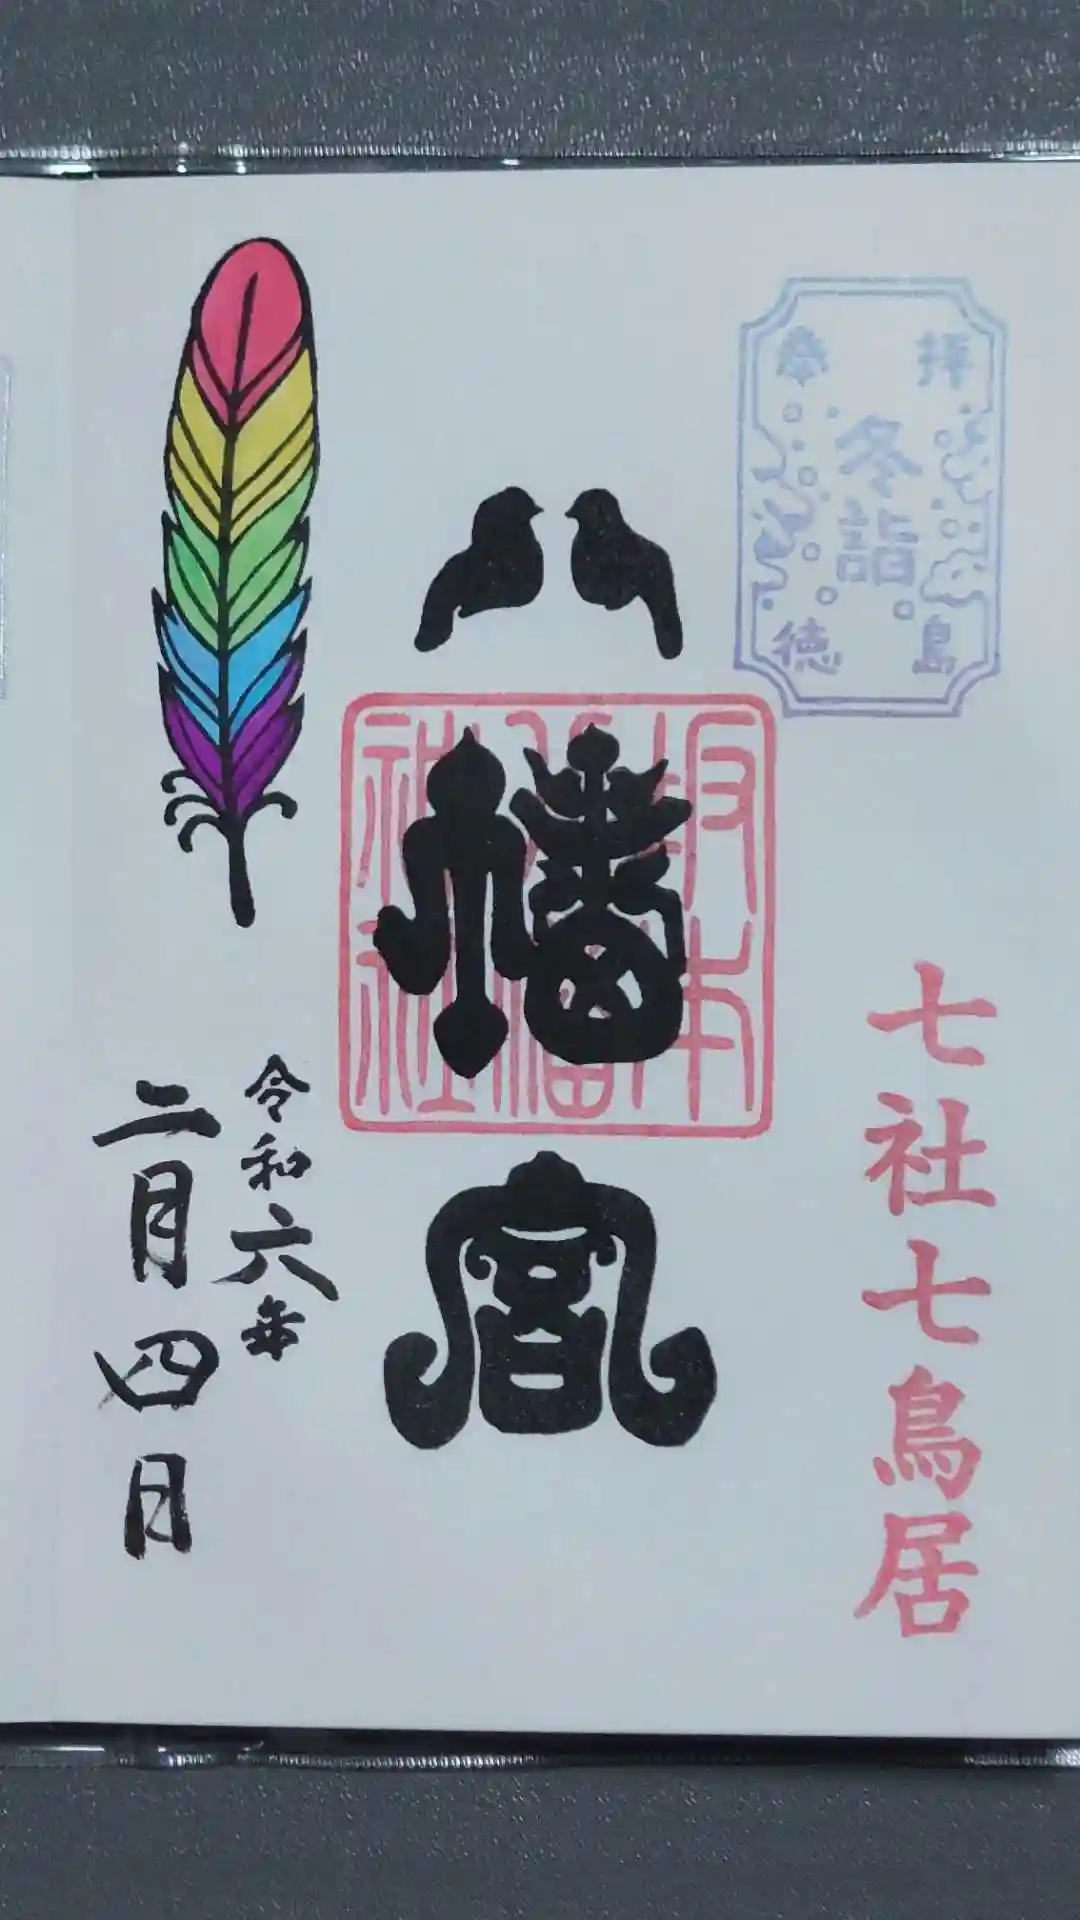 奉拝
冬詣
徳島
七社七鳥居
八幡宮
坂本
八幡
神社
令和六年
二月四日